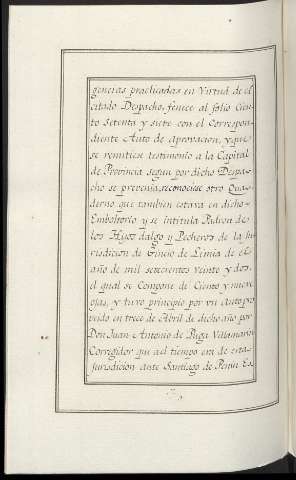 gencias practicadas en Virtud de el
citado Despacho, fenece al folio Cien
to Setenta y siete con el Correspon
diente Auto de Aprovacion, y que
se remitiese testimonio a la Capital
de Provincia segun por dicho Despa-
cho se prevenia, reconociose otro Qua-
derno que tambien estava en dicho
Emboltorio y se intitula Padron de
los Hijos dalgo y Pecheros de la Ju
risdicion de Ginzo de Limia de el
año de mil setecientos Veinte y dos,
el qual se Compone de Ciento y nueve
ojas, y tuvo principio por vn Auto pro
beido en trece de Abril de dicho año por
Don Juan Antonio de Puga Villamarin
Corregidor que a el tiempo era de esta
Jurisdicion ante Santiago de Penin Es